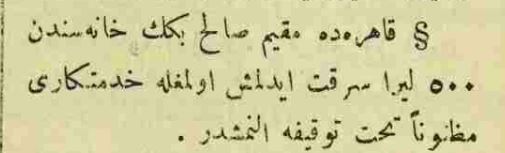 § قاهره‌ده مقیم صالح بكك خانه‌سندن
٥٠٠ لیرا سرقت ایدلمش اولمغله خدمتكاری
مظنوناً تحت توقیفه النمشدر .